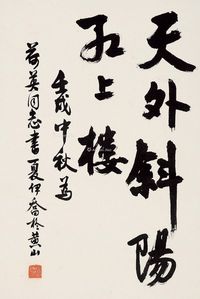 天外斜陽
紅上樓
壬戌中秋為
荷英同志書夏伊喬於黄山